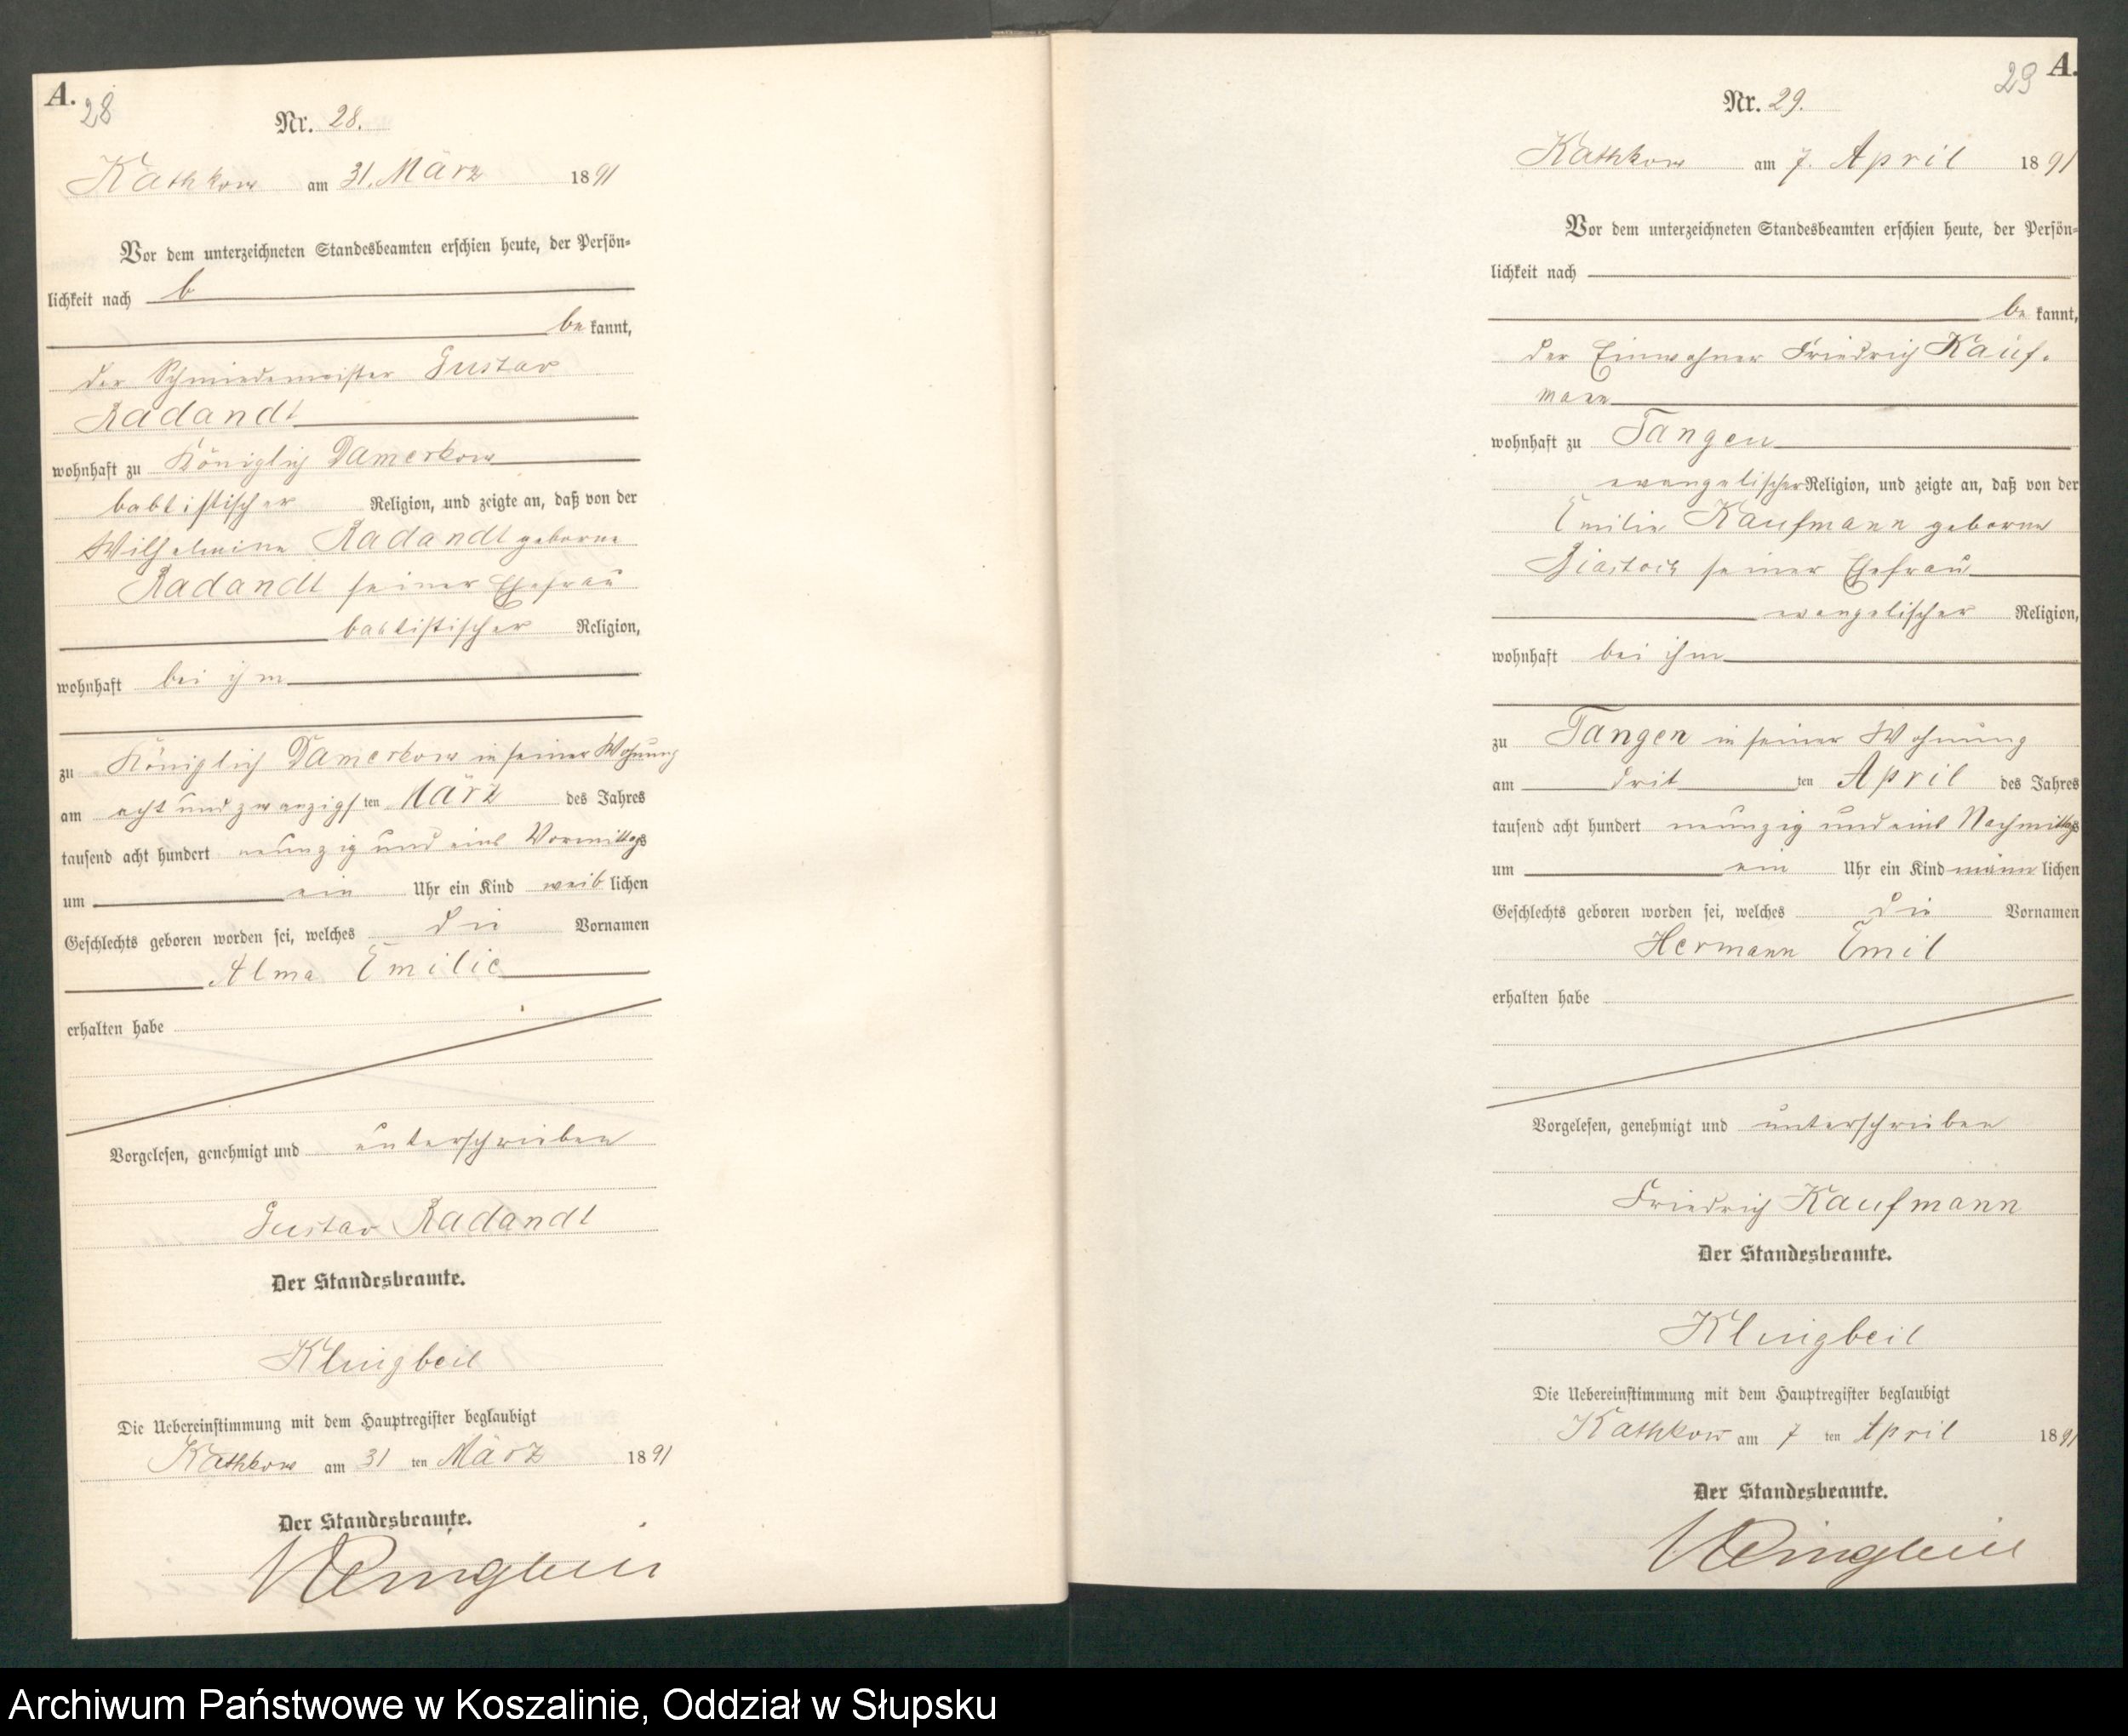 A.
28
Nr. 28.
Kathkow am 31. März 1891
Vor dem unterzeichneten Standesbeamten erschien heute, der Persön-
lichkeit nach b
be kannt,
der Schmiedemeister Gustav
Radandt
wohnhaft zu Königlich Damerkow
babtistischer Religion, und zeigte an, daß von der
Wilhelmine Radandt geborne
Radandt seiner Ehefrau
babtistischer Religion,
wohnhaft bei ihm
zu Königlich Damerkow in seiner Wohnung
am acht und zwanzigs ten März des Jahres
tausend acht hundert neunzig und eins Vormittags
um ein Uhr ein Kind weib lichen
Geschlechts geboren worden sei, welches die Vornamen
Alma Emilie
erhalten habe
Vorgelesen, genehmigt und unterschrieben
Gustav Radandt
Der Standesbeamte.
Klingbeil
Die Uebereinstimmung mit dem Hauptregister beglaubigt
Kathkow am 31 ten März 1891
Der Standesbeamte.
Klingbeil
29 A.
Nr. 29.
Kathkow am 7. April 1891
Vor dem unterzeichneten Standesbeamten erschien heute, der Persön-
lichkeit nach
be kannt,
der Einwohner Friedrich Kauf-
mann
wohnhaft zu Tangen
evangelischer Religion, und zeigte an, daß von der
Emilie Kaufmann geborne
seiner Ehefrau
evangelischer Religion,
wohnhaft bei ihm
zu Tangen in seiner Wohnung
am drit ten April des Jahres
tausend acht hundert neunzig und eins Nachmittags
um ein Uhr ein Kind männ lichen
Geschlechts geboren worden sei, welches die Vornamen
Hermann Emil
erhalten habe
Vorgelesen, genehmigt und unterschrieben
Friedrich Kaufmann
Der Standesbeamte.
Klingbeil
Die Uebereinstimmung mit dem Hauptregister beglaubigt
Kathkow am 7 ten April 1891
Der Standesbeamte.
Klingbeil
Archiwum Państwowe w Koszalinie, Oddział w Słupsku